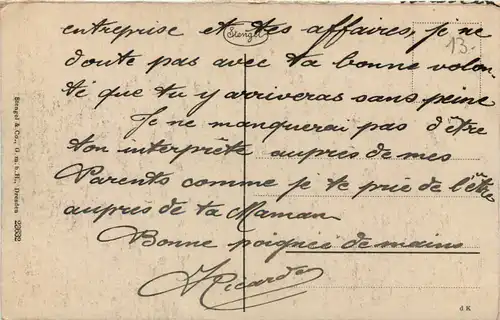 entreprise et tes affaires, je ne
doute pas avec ta bonne volon
té que tu y arriveras sans peine
Je ne manquerai pas d'être
ton interprète aupres de mes
Parents comme je te prie de l'être
aupres de ta Maman
Bonne poignée de mains
Ricardo
Stengel
13.
Stengel & Co., G. m. b. H., Dresden 22632
d K